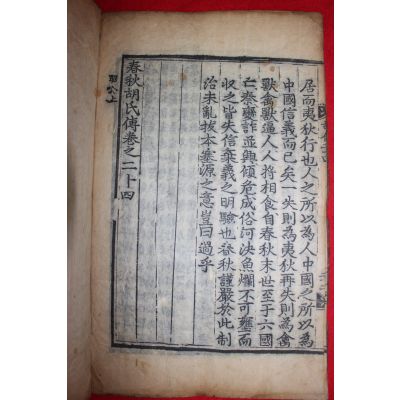 居而夷狄行也人之所以為人中國之所以為
中國信義而已矣一失則為夷狄再失則為禽
獸禽獸逼人人將相食自春秋末世至于六國
亡秦變詐並興傾危成俗河決魚爛不可壅而
收之皆失信棄義之明驗也春秋謹嚴於此制
治未亂拔本塞源之意豈曰過乎
春秋胡氏傳卷之二十四
昭公上